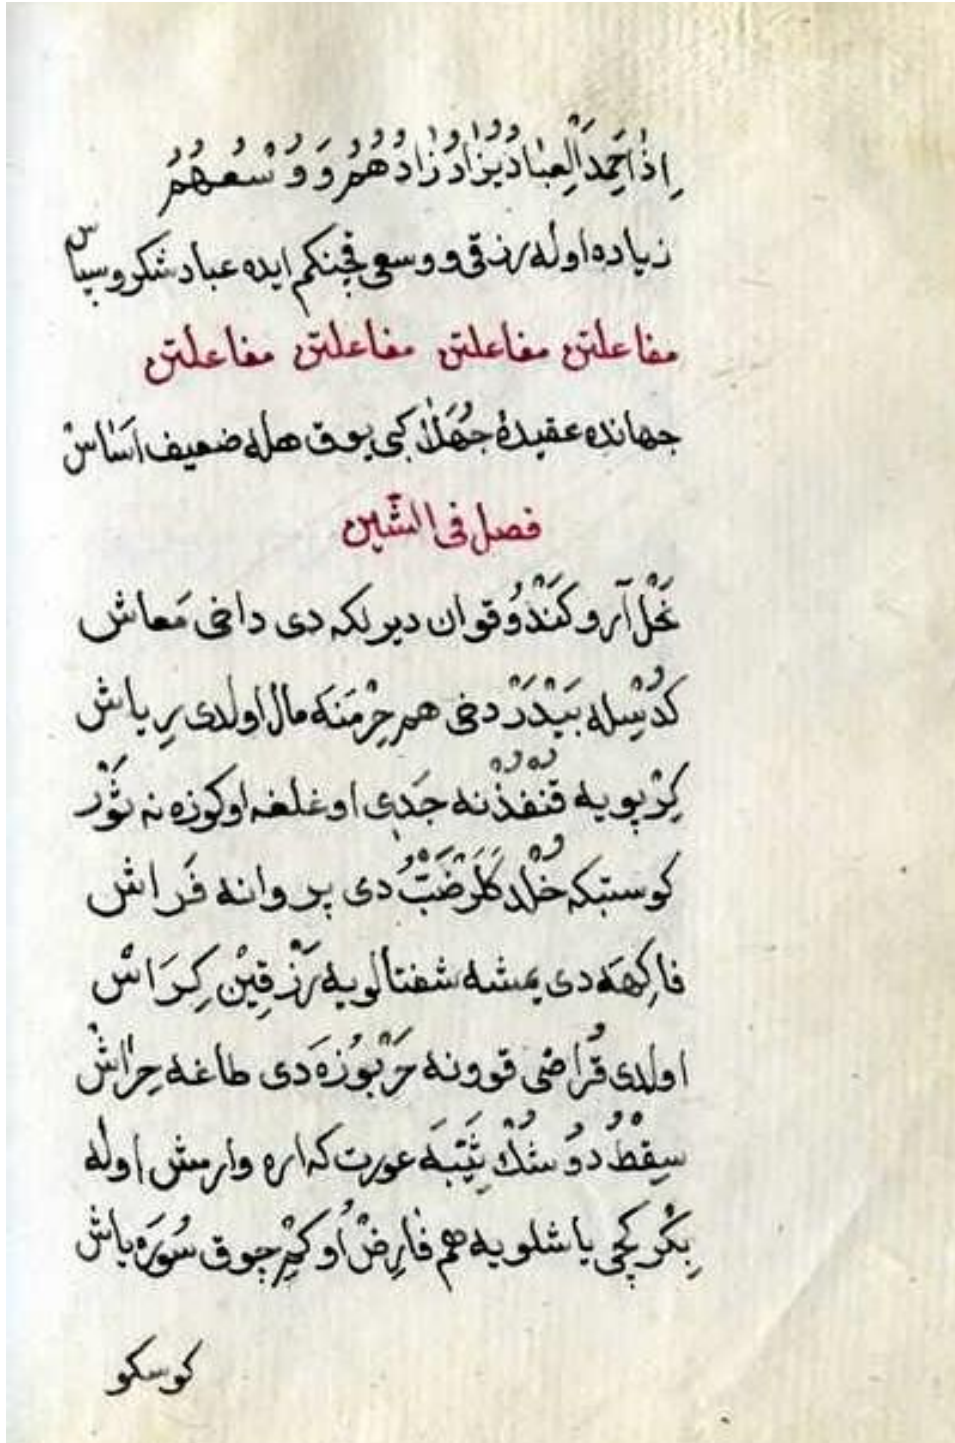 اِذَا حَمِدَ الْعِبَادُ يُزَادُ زَادُهُمُ وَ وُسْعُهُمُ
زیاده اوله رزقی و وسعی قچنکم ایده عباد شکر و سپاس
مفاعلتن مفاعلتن مفاعلتن مفاعلتن
جهانده عقیدۀ جُهَلا کبی یوق هله ضعیف اَسَاسْ
فصل فی الشّین
نَحْل آرو کَنْدُو قوان دیرلکه دی داخی مَعاش
كُدْسِله بَیْدَرْ دخی هم خِرْمَنَه مال اولدی رِیاش
کِرْپویه قُنْفُذْ نه جَدی اوغلغه اوکوزه نه ثَوْر
کوستبکه خُلْد کَلَرْ ضَبّْ دی پروانه فَراش
فاکِهَه دی یمشه شفتالویه رَزْقِیْن کِرَاسْ
اولدی قُراضی قوونه خَرْبُوزَه دی طاغه حِرَاشْ
سِقْطُ دُوشُكْ ثَیِّبَه عورت که اره وارمش اوله
بِکْر کچی یاشلویه هم فَارِضْ اُوکیْر چوق سُوَره یاش
کوسکو